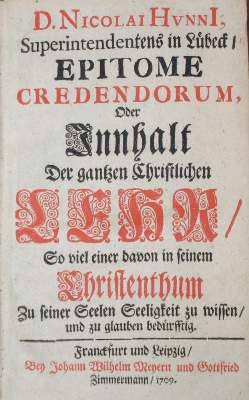 D. NICOLAI HVNNI,
Superintendentens in Lübeck/
EPITOME
CREDENDORUM,
Oder
Innhalt
Der gantzen Christlichen
LEHR/
So viel einer davon in seinem
Christenthum
Zu seiner Seelen Seeligkeit zu wissen/
und zu glauben bedürfftig.
Franckfurt und Leipzig/
Bey Johann Wilhelm Meyern und Gottfried
Zimmermann/1709.